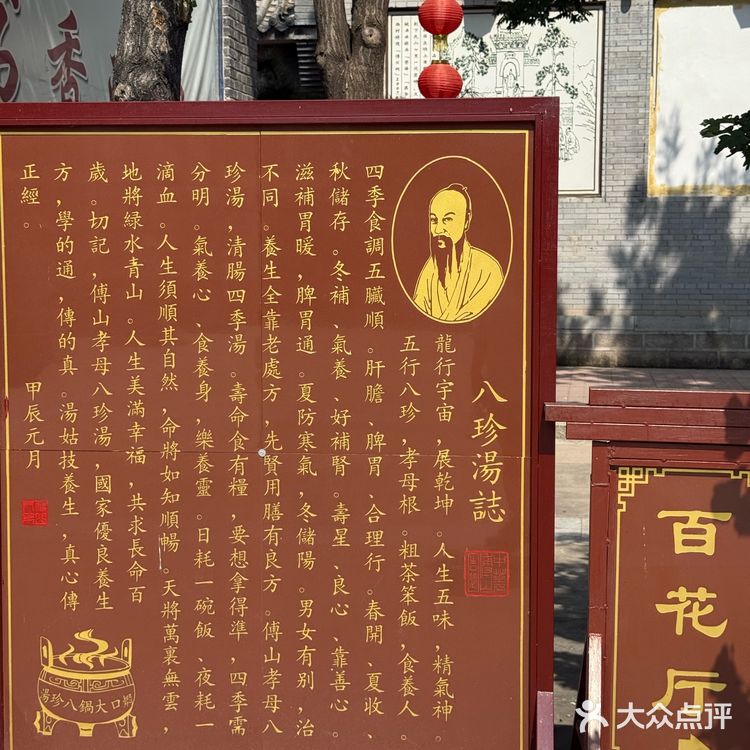 八珍湯誌
龍行宇宙，展乾坤。人生五味，精氣神。
五行八珍，孝母根。粗茶笨飯，食養人。
四季食調五臟順。肝膽、脾胃、合理行。春開、夏收、
秋儲存。冬補、氣養、好補腎。壽星、良心、靠善心。
滋補胃暖，脾胃通。夏防寒氣，冬儲陽。男女有別，治
不同。養生全靠老處方，先賢用膳有良方。傅山孝母八
珍湯，清腸四季湯。壽命食有糧，要想拿得準，四季需
分明。氣養心、食養身，樂養靈。日耗一碗飯、夜耗一
滴血。人生須順其自然，命將如知順暢。天將萬裏無雲，
地將綠水青山。人生美滿幸福，共求長命百
歲。切記，傅山孝母八珍湯，國家優良養生
方，學的通，傳的真。湯姑技養生，真心傳
正經。
甲辰元月
湯珍八鍋大口
百花厅
香
大众点评